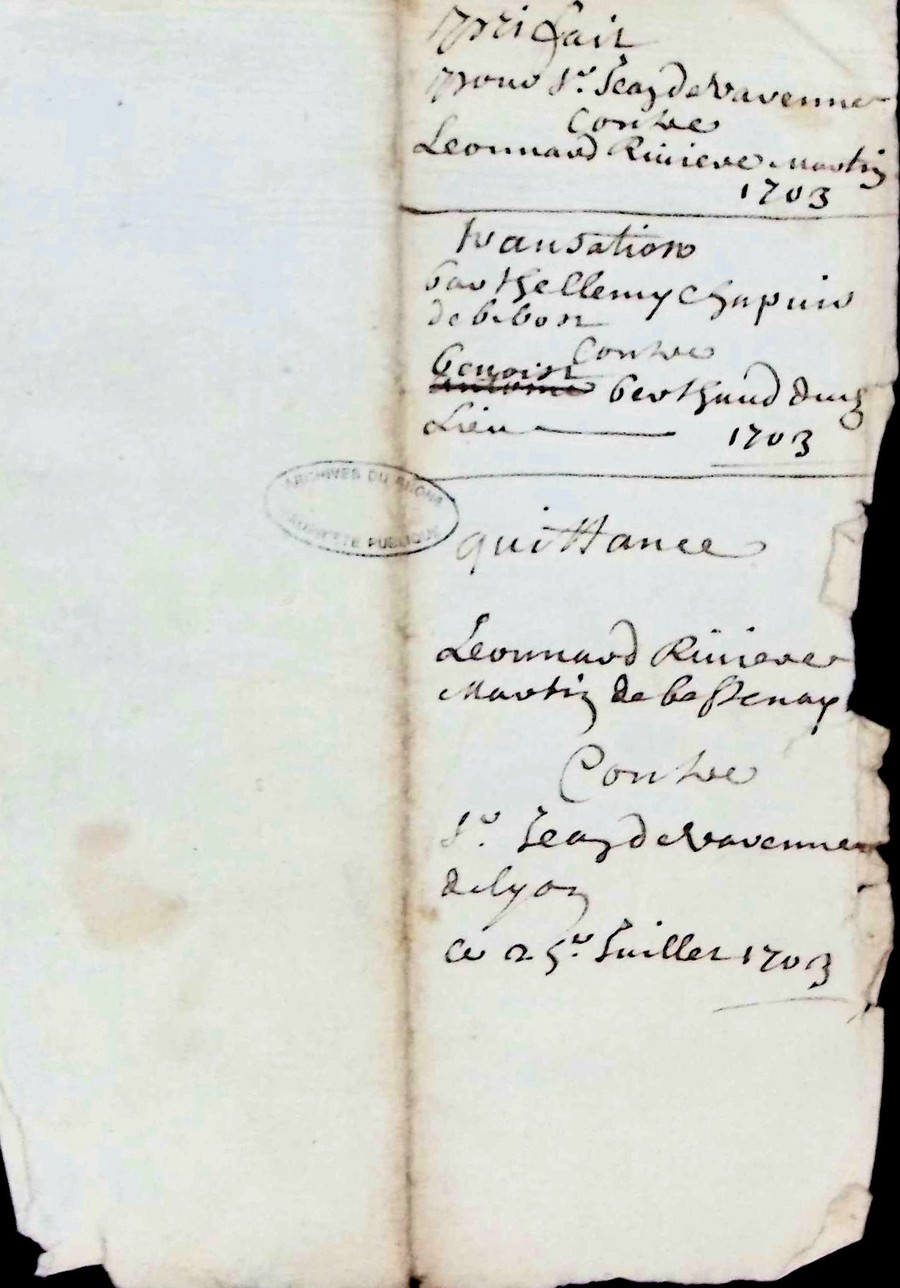 Prifait
Pour Sr. Jean de Varenne
Contre
Leonnard Riviere Martin
1703
transation
barthellemy Chapuis
de bibost
Contre
benoist
antoine berthaud dud
Lieu 1703
ARCHIVES DU RHONE
PROPRIÉTÉ PUBLIQUE
quittance
Leonnard Riviere
Martin de bessenay
Contre
Sr. Jean de Varenne
de lyon
Ce 25e. Juillet 1703